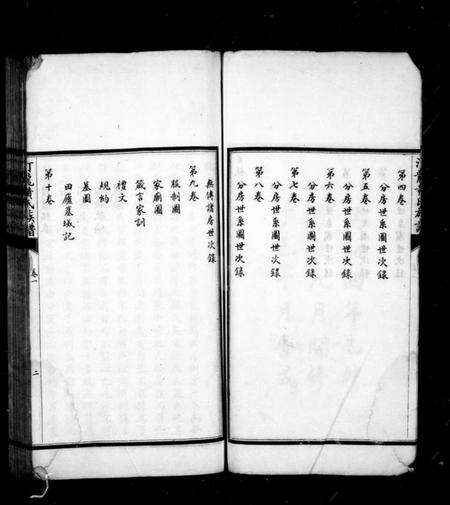 第四卷
分房世系圖世次錄
第五卷
分房世系圖世次錄
第六卷
分房世系圖世次錄
第七卷
分房世系圖世次錄
第八卷
分房世系圖世次錄
無傳譜房世次錄
第九卷
服制圖
家廟圖
箴言家訓
禮文
規約
墓圖
田廬墓域記
第十卷
氏族譜
卷一
二